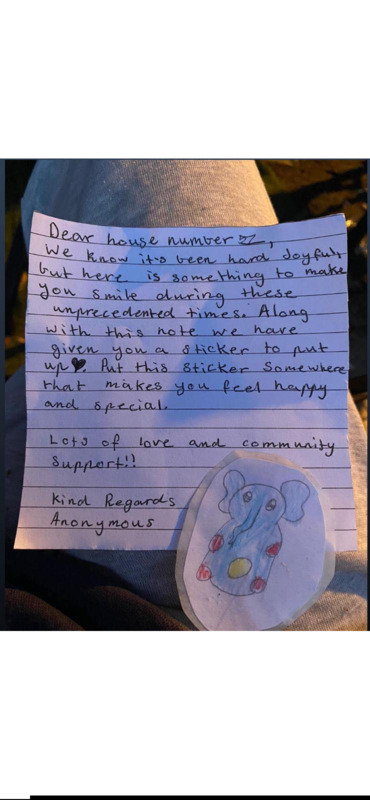 Dear house number 22,
We know it's been hard Joyful,
but here is something to make
you smile during these
unprecedented times. Along
with this note we have
given you a sticker to put
up♥ Put this sticker somewhere
that makes you feel happy
and special.
Lots of love and community
support!!
Kind Regards
Anonymous